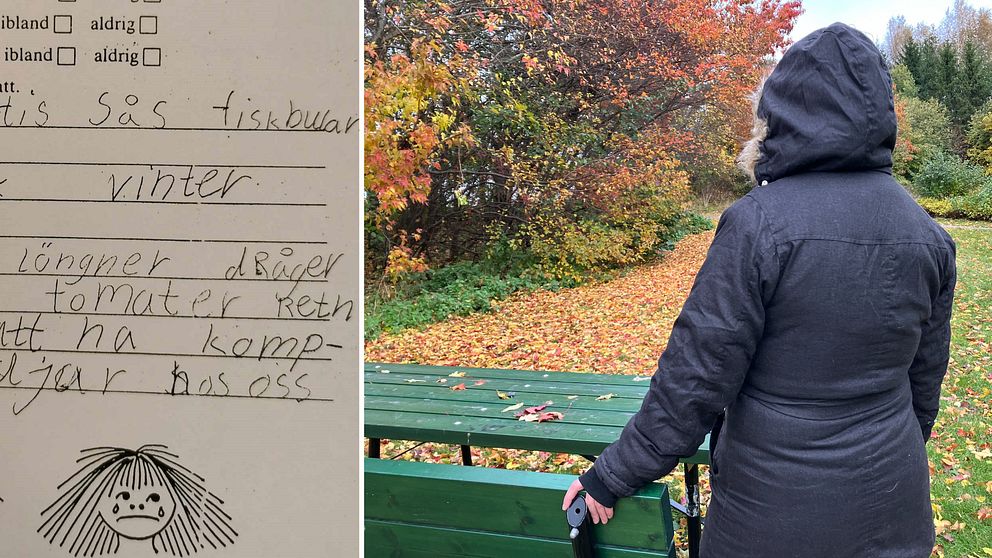 ibland aldrig
ibland aldrig
tis sås fiskbullar
vinter
längner dRåger
tomater Retn
att ha komp-
djar hos oss